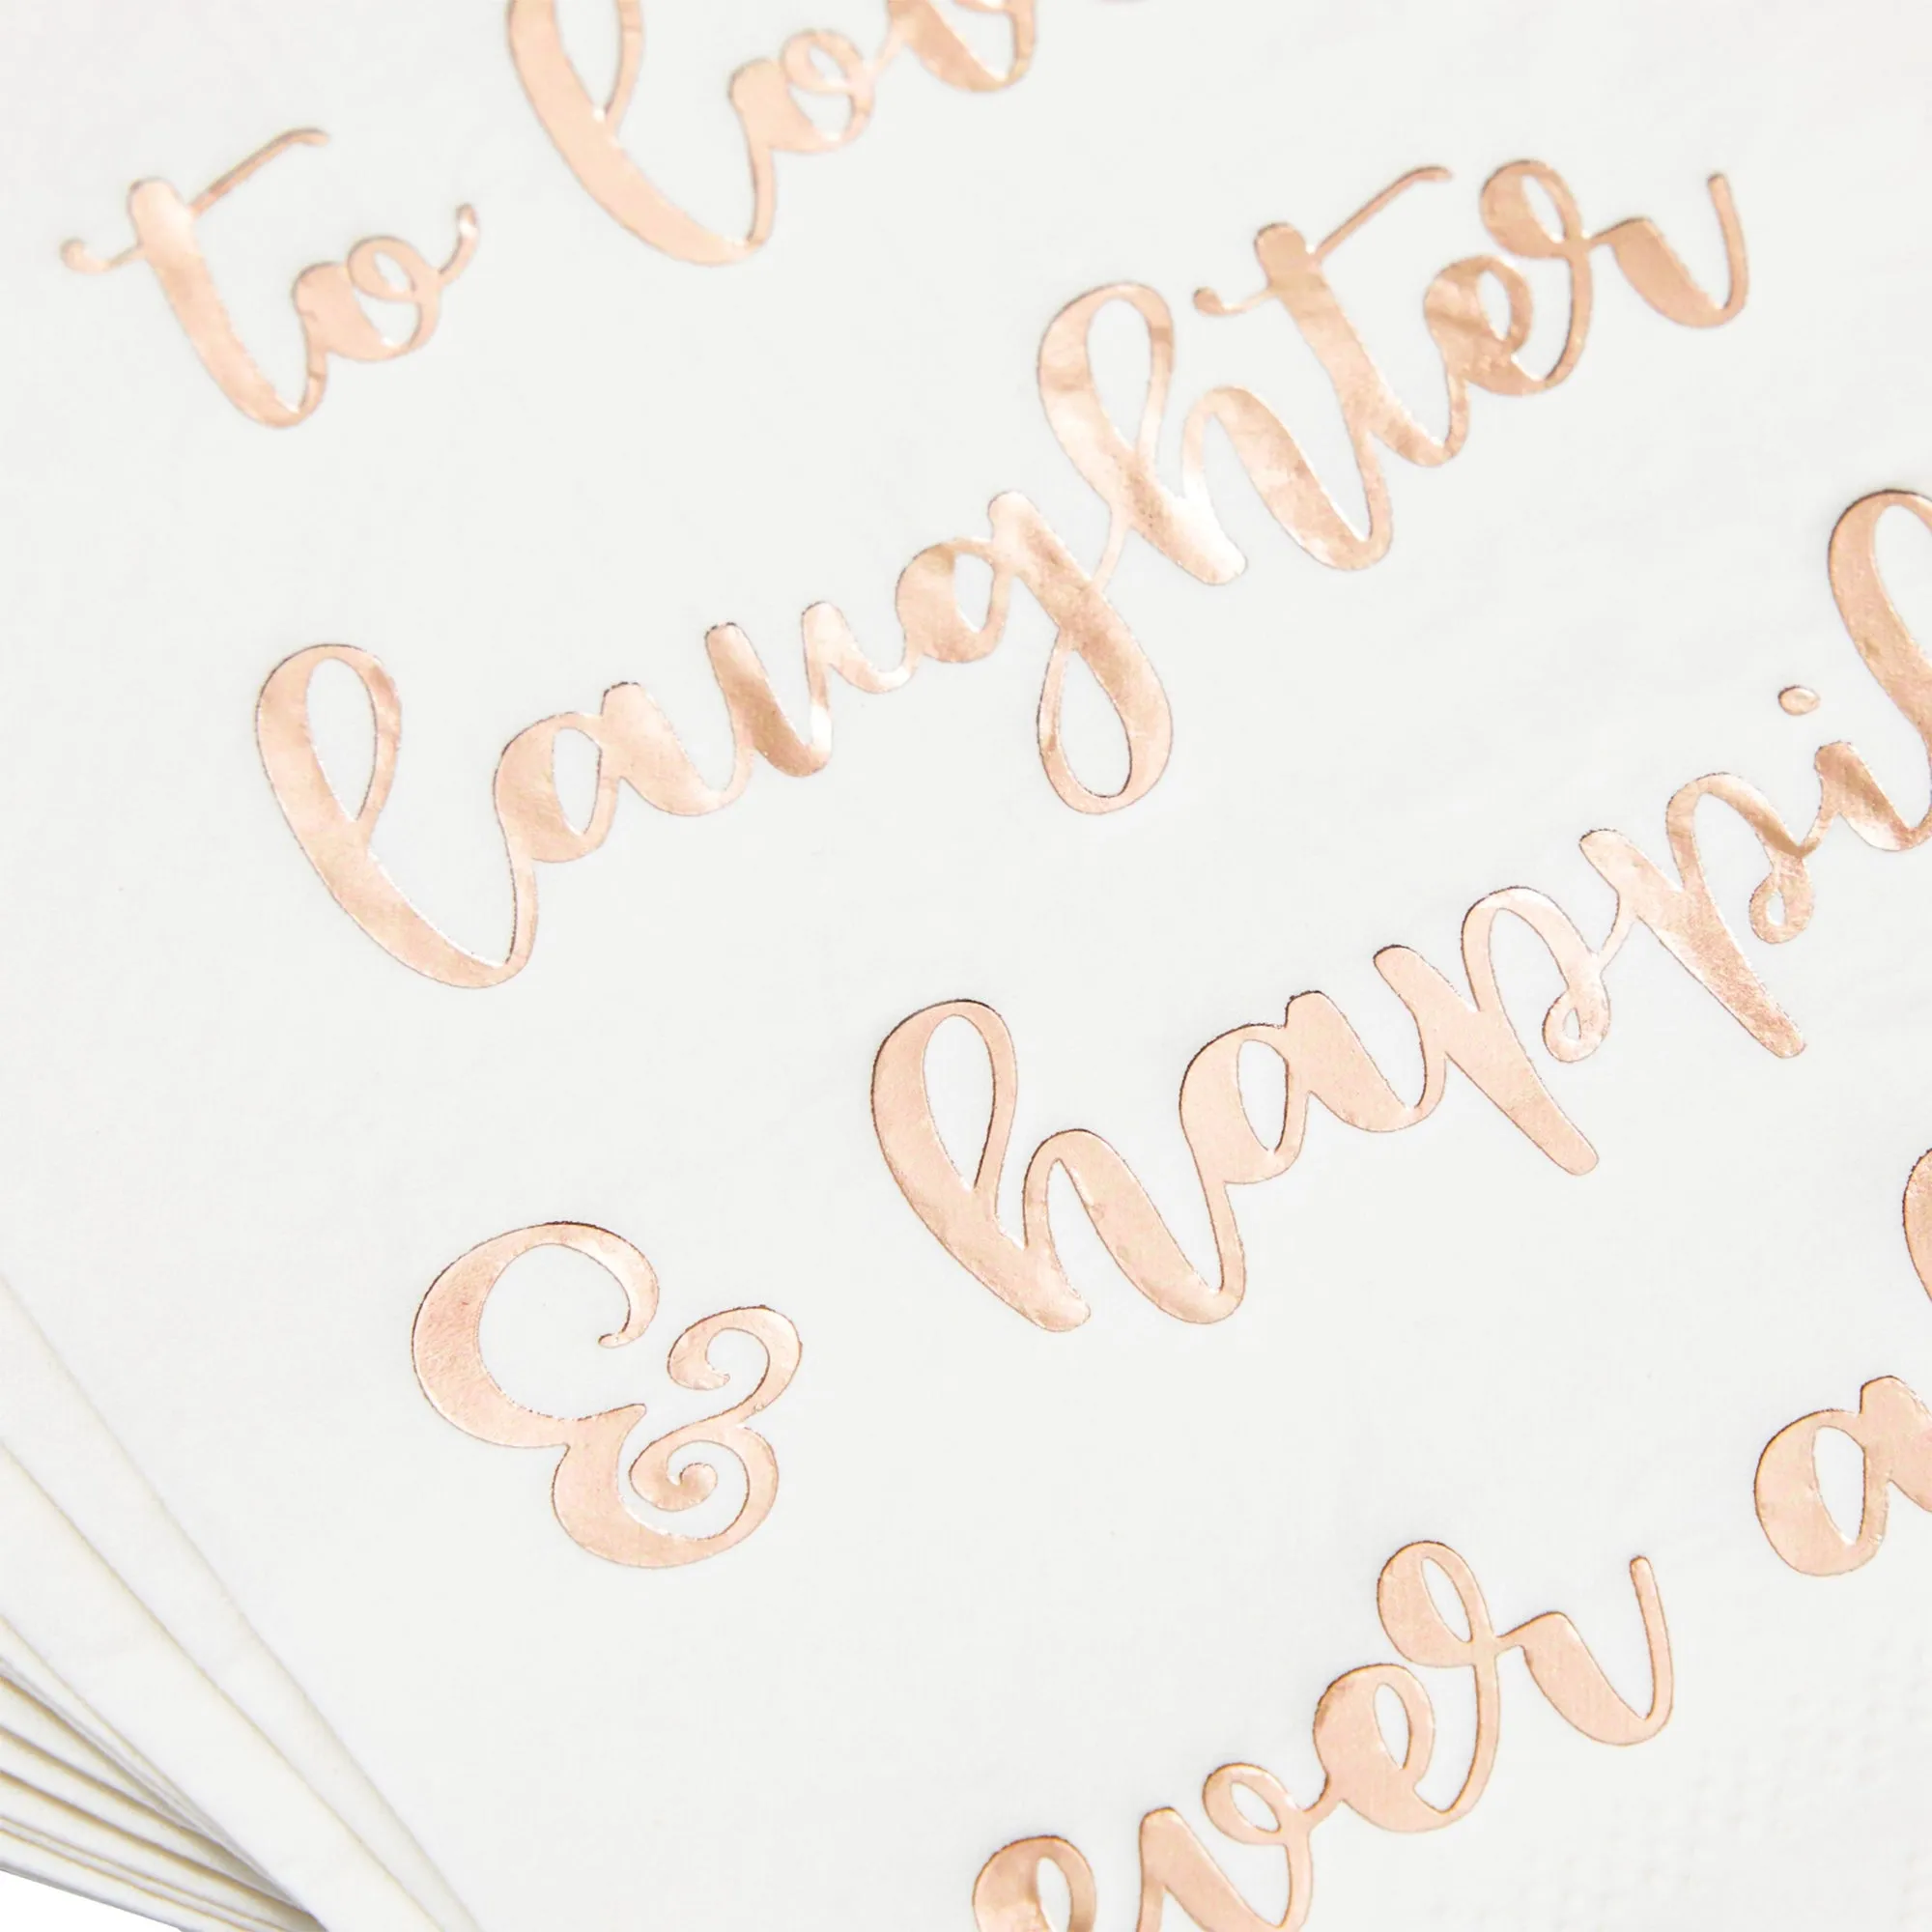 to lov
laughter
& happil
ever a